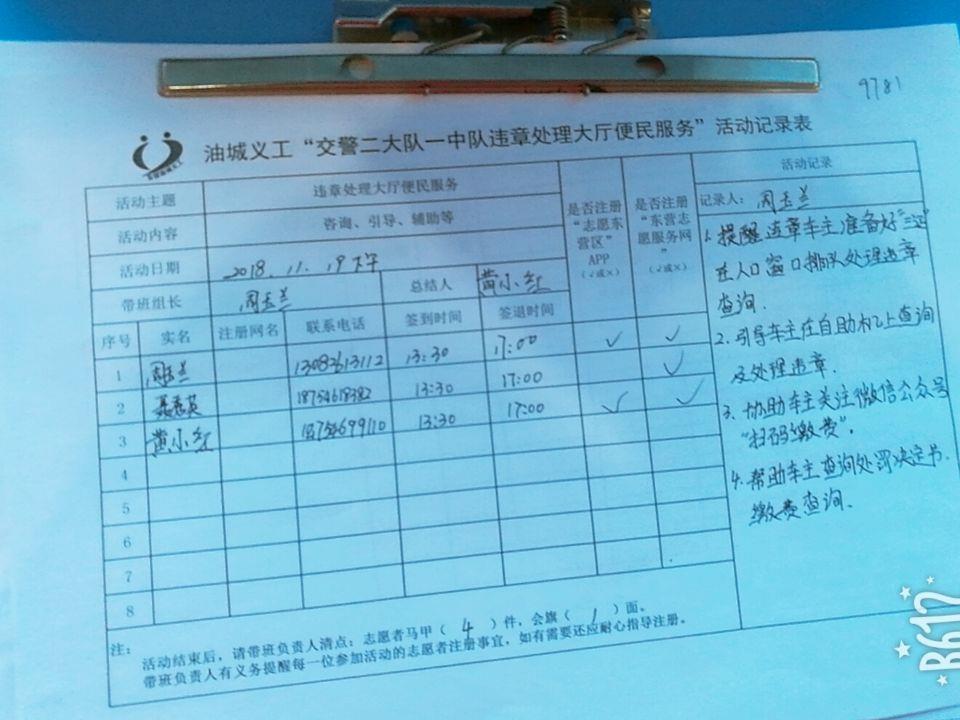 9781
油城义工“交警二大队一中队违章处理大厅便民服务”活动记录表
活动主题 违章处理大厅便民服务
活动内容 咨询、引导、辅助等
活动日期 2018.11.19下午
带班组长 周玉兰 总结人 黄小红
序号 实名 注册网名 联系电话 签到时间 签退时间 是否注册“志愿东营区”APP（√或×） 是否注册“东营志愿服务网”（√或×）
1 周玉兰 13082613112 13:30 17:00 ✓ ✓
2 18754618382 13:30 17:00 ✓
3 黄小红 18754699110 13:30 17:00 ✓ ✓
4
5
6
7
8
活动记录
记录人：周玉兰
1.提醒违章车主准备好“三证”
在人口窗口排队处理违章
查询.
2.引导车主在自助机上查询
及处理违章.
3.协助车主关注微信公众号
“扫码缴费”.
4.帮助车主查询处罚决定书.
缴费查询.
注：
活动结束后，请带班负责人清点：志愿者马甲（4）件，会旗（1）面。
带班负责人有义务提醒每一位参加活动的志愿者注册事宜，如有需要还应耐心指导注册。
B612